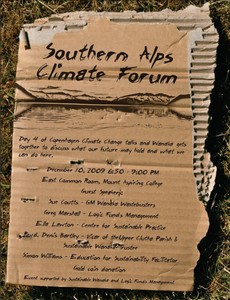 Southern Alps
Climate Forum
Day 4 of Copenhagen Climate Change talks and Wanaka gets
together to discuss what our future may hold and what we
can do here.
December 10, 2009 6:30 - 9:00 PM
East Common Room, Mount Aspiring College
Guest Speakers
Sue Coutts - GM Wanaka Wastebusters
Greg Marshall - Logic Funds Management
Ella Lawton - Centre for Sustainable Practice
Denis Bartley - Vicar of the Upper Clutha Parish &
Sustainable Wanaka
Simon Williams - Education for Sustainability Facilitator
Gold coin donation
Event supported by Sustainable Wanaka and Logic Funds Management